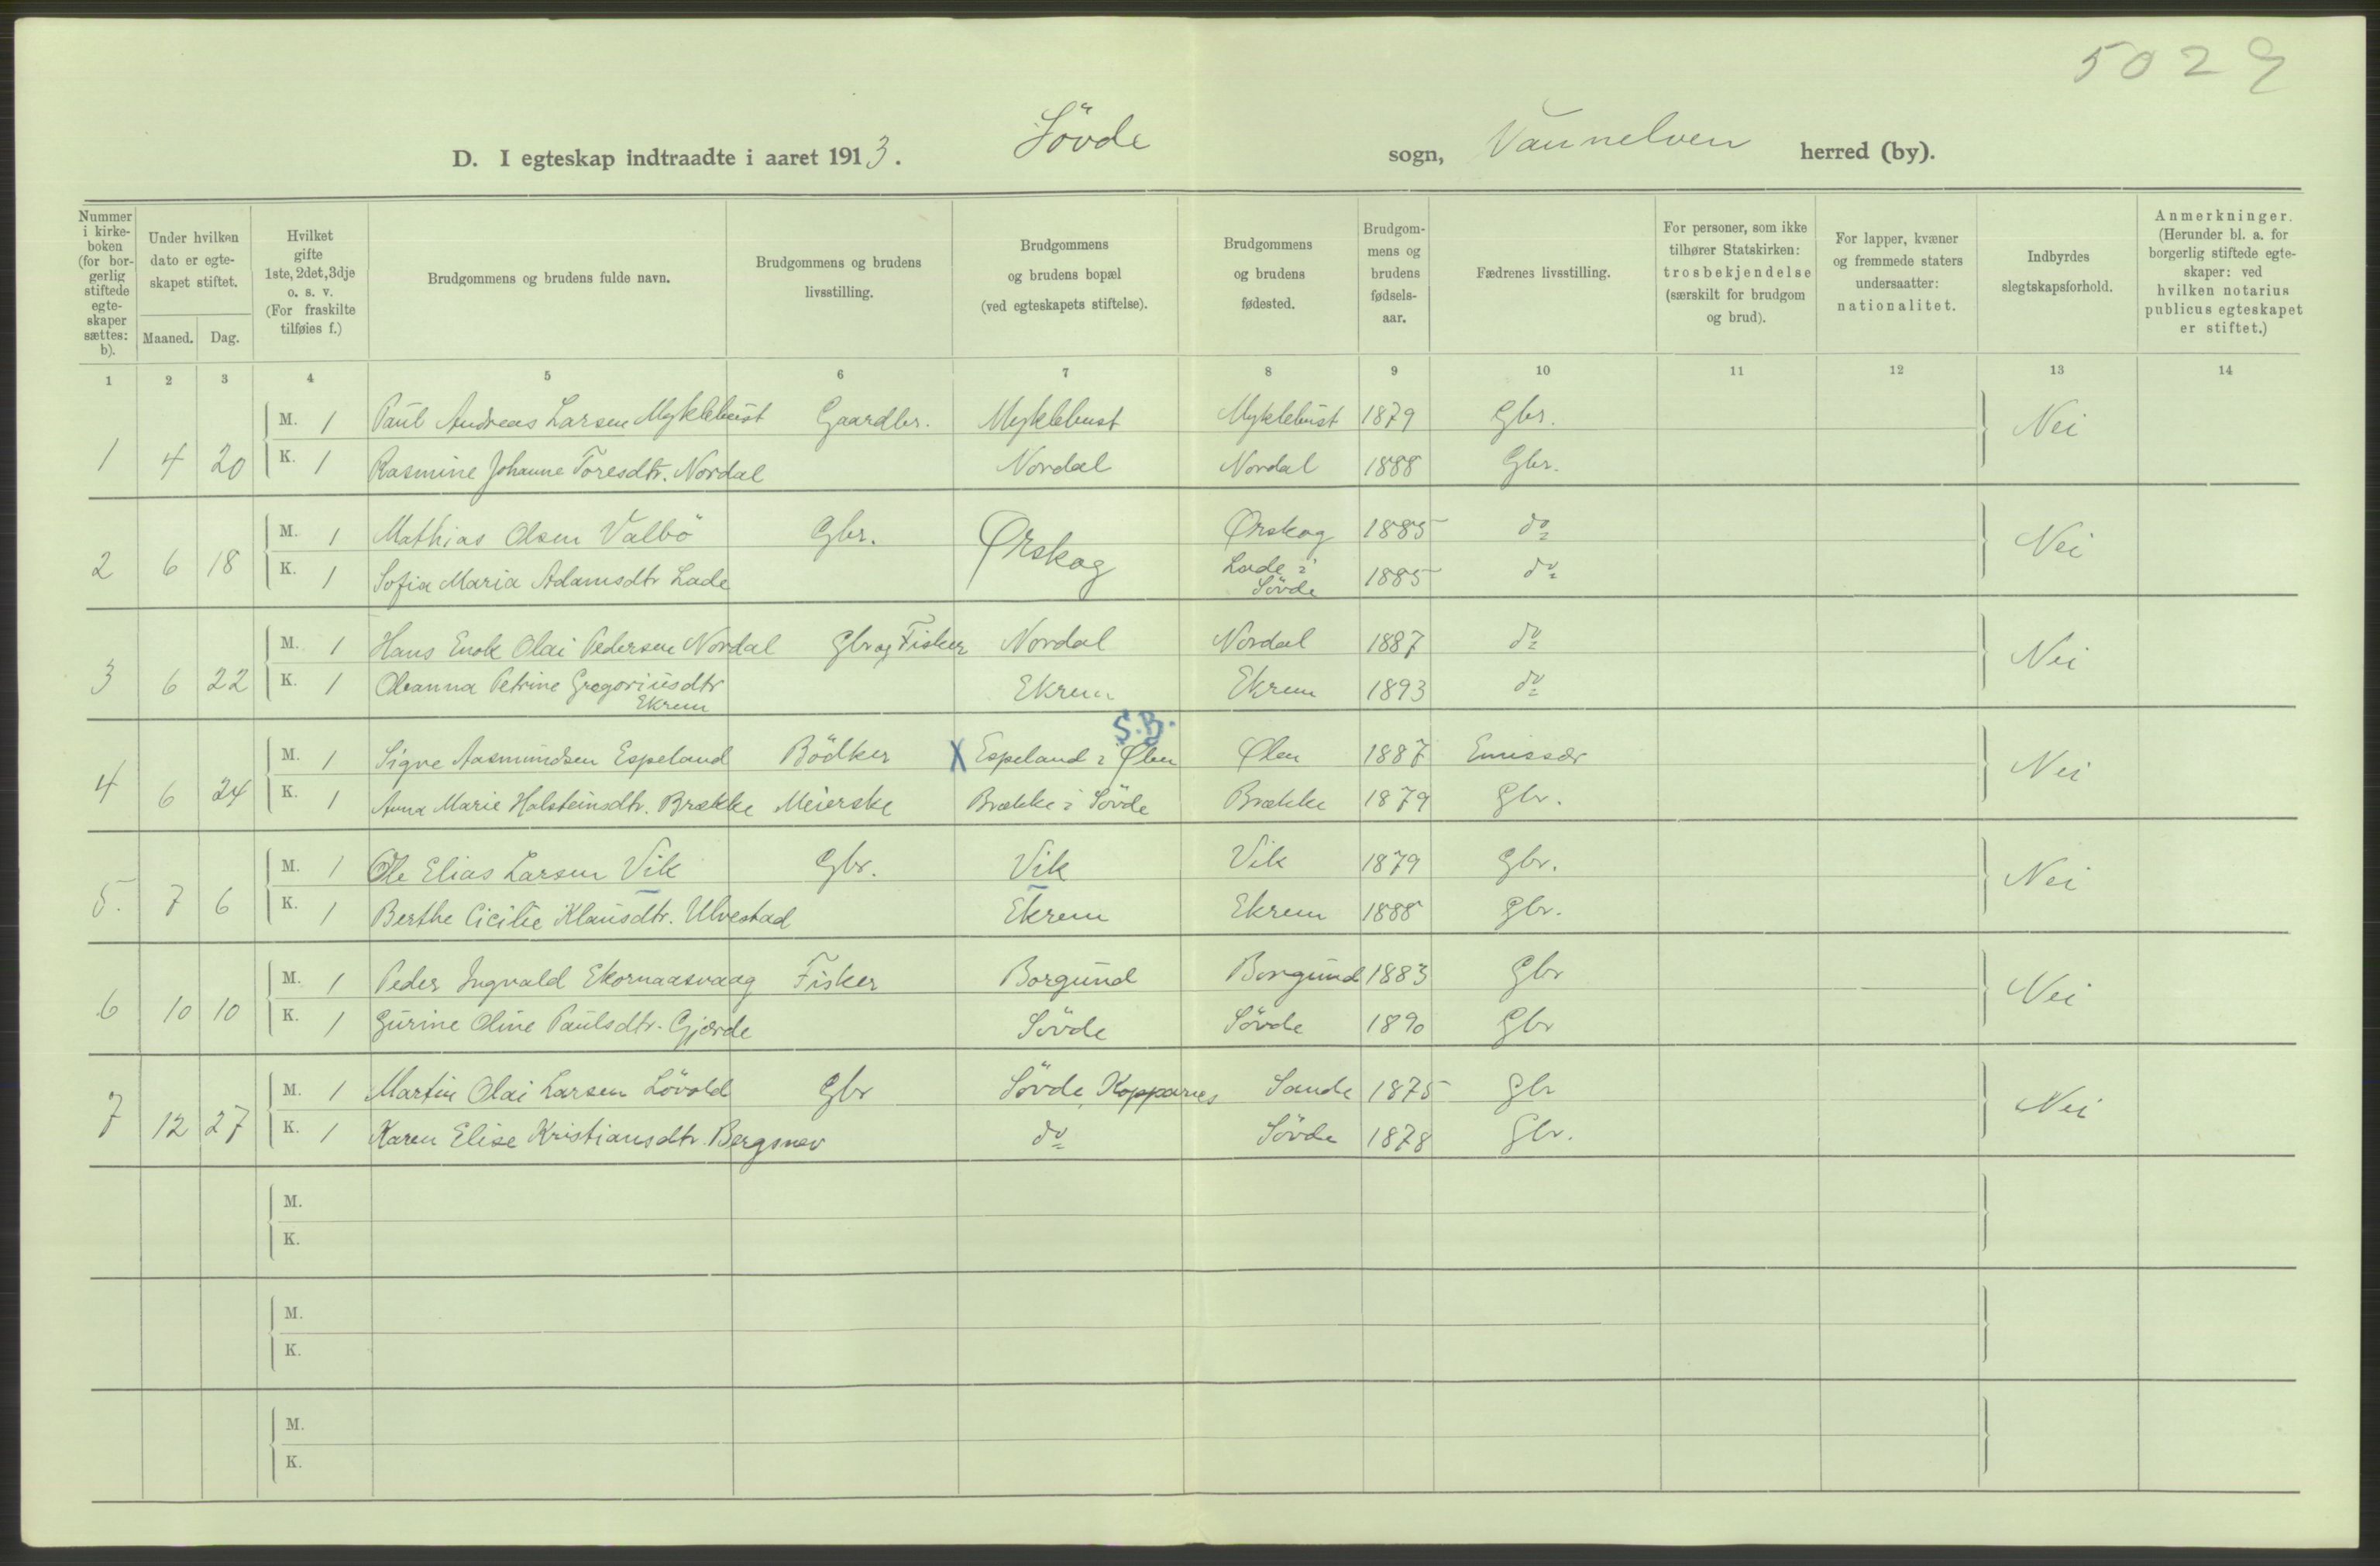 5029
D. I egteskap indtraadte i aaret 1913. Sövde sogn, Vannelven herred (by).
Nummer i kirke-boken (for bor-gerlig stiftede egte-skaper sættes: b).
Under hvilken dato er egte-skapet stiftet.
Maaned. Dag.
Hvilket gifte 1ste, 2det, 3dje o. s. v. (For fraskilte tilføies f.)
Brudgommens og brudens fulde navn.
Brudgommens og brudens livsstilling.
Brudgommens og brudens bopæl (ved egteskapets stiftelse).
Brudgommens og brudens fødested.
Brudgom-mens og brudens fødsels-aar.
Fædrenes livsstilling.
For personer, som ikke tilhører Statskirken: trosbekjendelse (særskilt for brudgom og brud).
For lapper, kvæner og fremmede staters undersaatter: nationalitet.
Indbyrdes slegtskapsforhold.
Anmerkninger. (Herunder bl. a. for borgerlig stiftede egte-skaper: ved hvilken notarius publicus egteskapet er stiftet.)
1 2 3 4 5 6 7 8 9 10 11 12 13 14
M. 1 Paul Andreas Larsen Myklebust Gaardbr. Myklebust Myklebust 1879 Gbr.
1 4 20 K. 1 Rasmine Johanne Toresdtr. Nordal Nordal Nordal 1888 Gbr. Nei
M. 1 Mathias Olsen Valbö Gbr. Ørskog Ørskog 1885 do
2 6 18 K. 1 Sofia Maria Adamsdtr Lade Lade i Sövde 1885 do Nei
M. 1 Hans Enok Olai Pedersen Nordal Gbr og Fisker Nordal Nordal 1887 do
3 6 22 K. 1 Oleanna Petrine Gregoriusdtr Ekrem Ekrem Ekrem 1893 do Nei
S.B.
M. 1 Sigve Aasmundsen Espeland Bödker X Espeland i Ølen Ølen 1887 Emissær
4 6 24 K. 1 Anna Marie Halsteinsdtr. Brække Meierske Brække i Sövde Brække 1879 Gbr. Nei
M. 1 Ole Elias Larsen Vik Gbr. Vik Vik 1879 Gbr.
5. 7 6 K. 1 Berthe Cicilie Klausdtr. Ulvestad Ekrem Ekrem 1888 Gbr. Nei
M. 1 Peder Ingvald Ekornaasvaag Fisker Borgund Borgund 1883 Gbr
6 10 10 K. 1 Gurine Oline Paulsdtr. Gjærde Sövde Sövde 1890 Gbr Nei
M. 1 Martin Olai Larsen Lövold Gbr Sövde, Kopparnes Sande 1875 Gbr
7 12 27 K. 1 Karen Elise Kristiansdtr. Bergsnev do Sövde 1878 Gbr. Nei
M.
K.
M.
K.
M.
K.